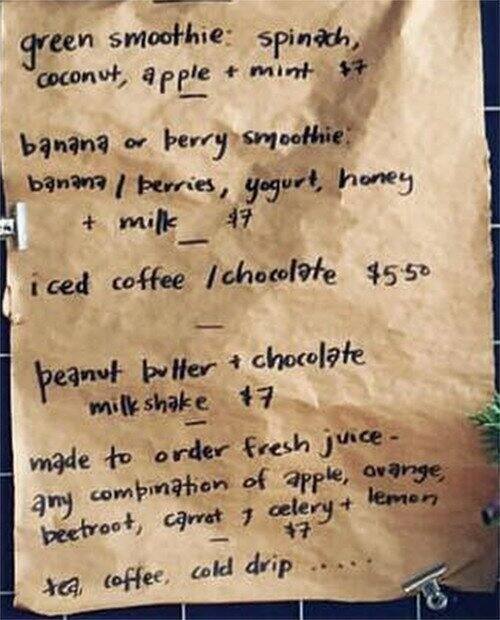 green smoothie: spinach,
coconut, apple + mint $7
banana or berry smoothie:
banana / berries, yogurt, honey
+ milk $7
iced coffee / chocolate $5.50
peanut butter + chocolate
milkshake $7
made to order fresh juice -
any combination of apple, orange,
beetroot, carrot, celery + lemon
$7
tea, coffee, cold drip .....